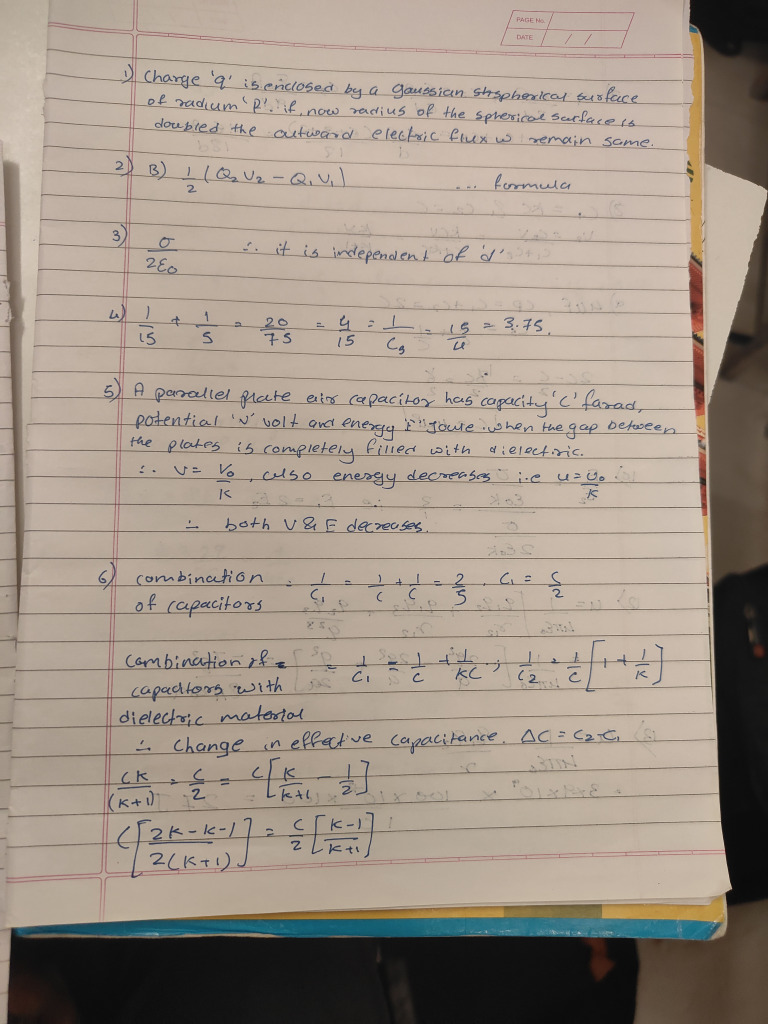 PAGE No.
DATE / /
1) Charge 'q' is enclosed by a gaussian spherical surface
of radium 'R'. if, now radius of the spherical surface is
doubled the outward electric flux w remain same.
2) B) 1/2 (Q2V2 - Q1V1) ... formula
3) σ/2ε0 ∴ it is independent of 'd'
4) 1/15 + 1/5 = 20/75 = 4/15 = 1/Cs = 15/4 = 3.75.
5) A parallel plate air capacitor has capacity 'C' farad,
potential 'V' volt and energy 'E' Joule. when the gap between
the plates is completely filled with dielectric.
∴ V = V0/K, also energy decreases i.e u = U0/K
∴ both V & E decreases.
6) combination = 1/C1 = 1/C + 1/C = 2/5 . C1 = C/2
of capacitors
Combination of = 1/C1 = 1/C + 1/KC ; 1/C2 = 1/C [1 + 1/K]
capacitors with
dielectric material
∴ Change in effective capacitance. ΔC = C2-C1
CK/(K+1) = C/2 = C[K/K+1 - 1/2]
C[2K-K-1/2(K+1)] = C/2 [K-1/K+1]